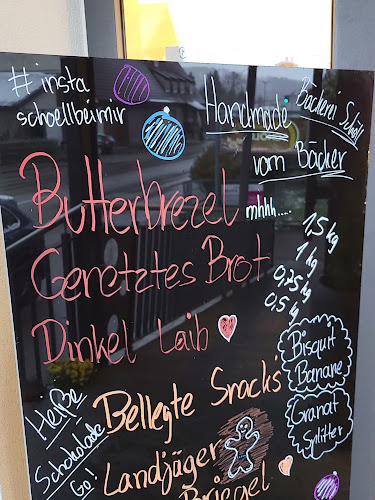 #insta
schoellbeimir
Handmade
vom Bäcker
Bäckerei Schöll
Butterbrezel mhhh.....
Genetztes Brot
1,5 kg
1 kg
0,75 kg
0,5 kg
Dinkel Laib
Bisquit
Banane
Granat
Splitter
Heiße
Schokolade
Go!
Bellegte Snacks'
Landjäger
Briegel